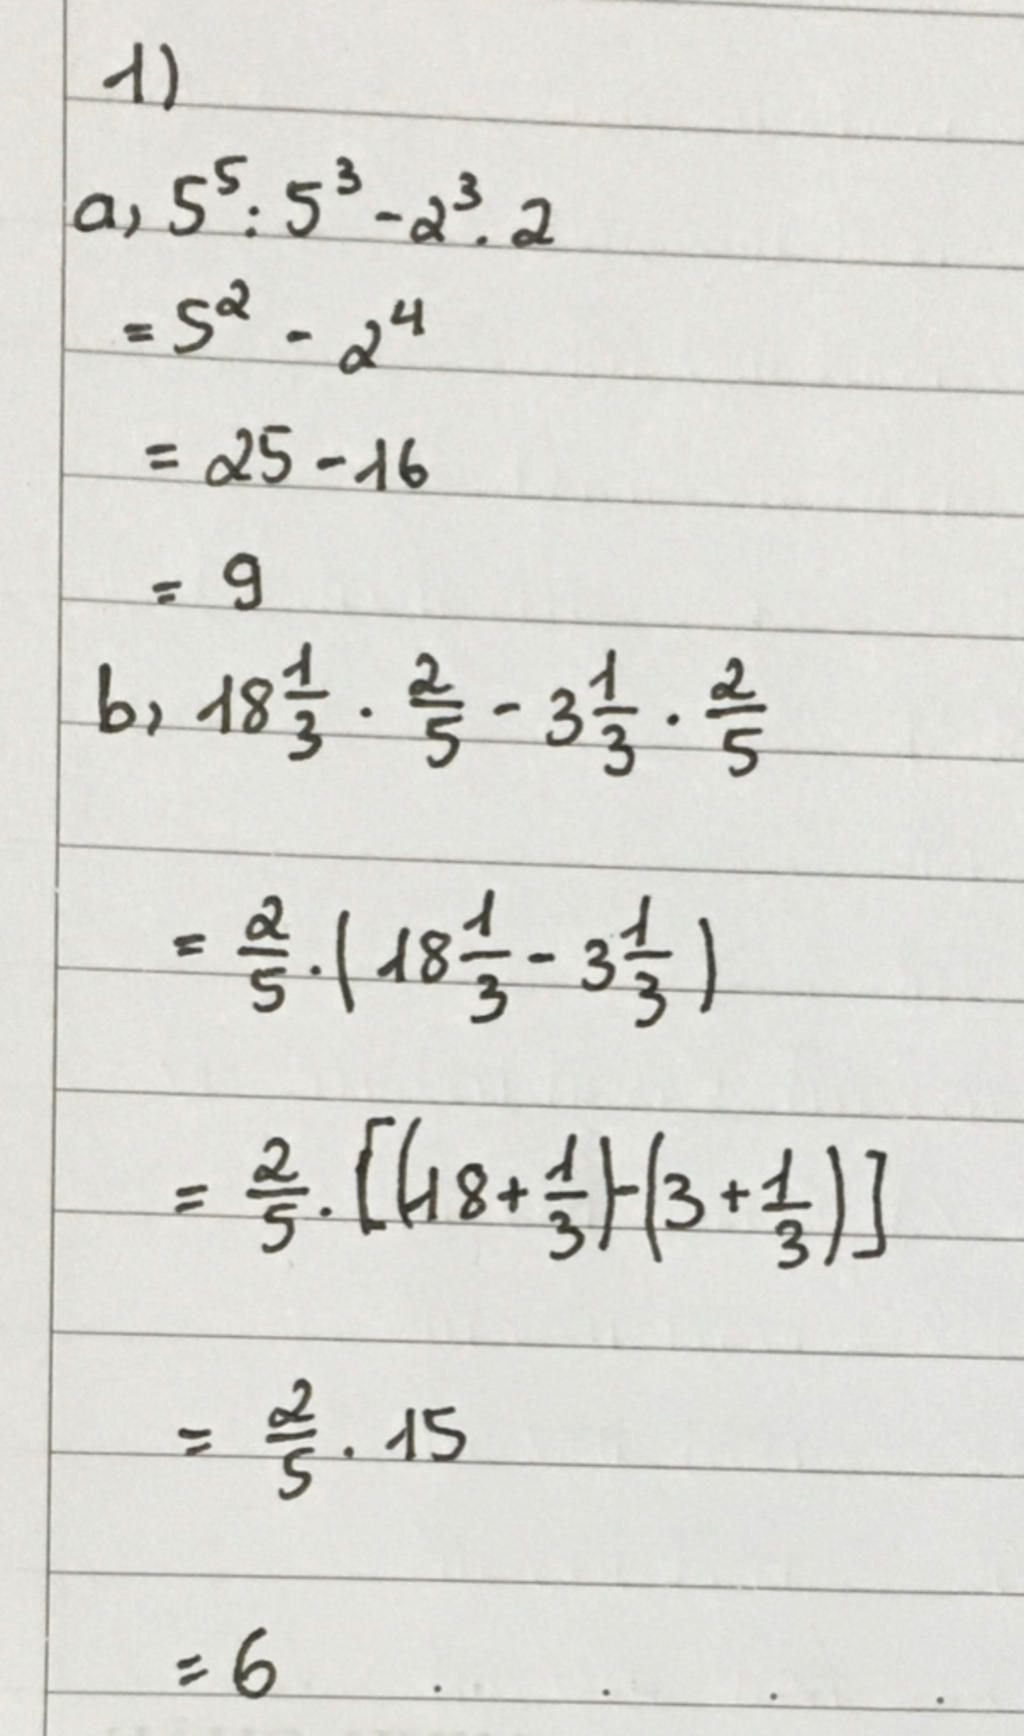 1)
a, 5⁵ : 5³ - 2³ . 2
= 5² - 2⁴
= 25 - 16
= 9
b, 18 1/3 . 2/5 - 3 1/3 . 2/5
= 2/5 . ( 18 1/3 - 3 1/3 )
= 2/5 . [(18 + 1/3) - (3 + 1/3)]
= 2/5 . 15
= 6